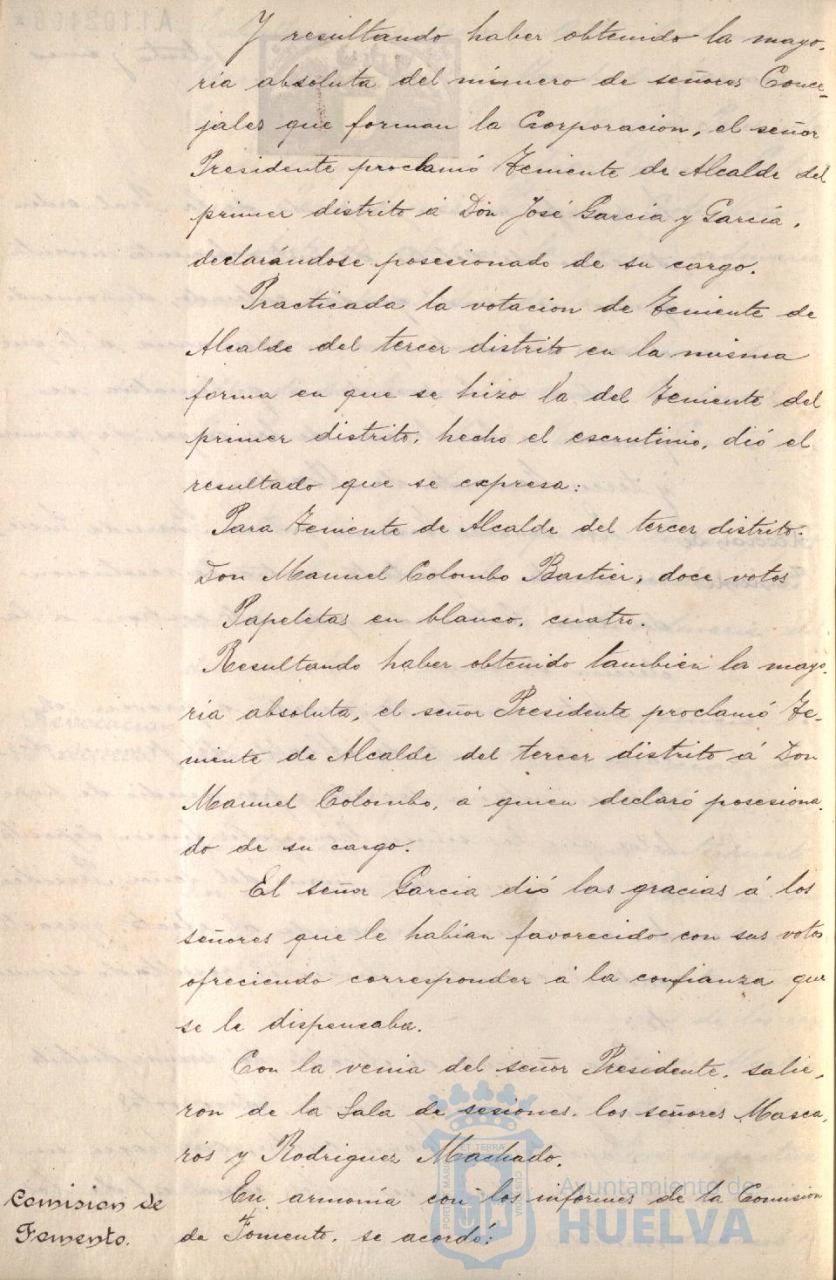 Y resultando haber obtenido la mayo-
ria absoluta del número de señores Conce-
jales que forman la Corporacion, el señor
Presidente proclamó Teniente de Alcalde del
primer distrito á Don José Garcia y Garcia,
declarándose posesionado de su cargo.
Practicada la votacion de Teniente de
Alcalde del tercer distrito en la misma
forma en que se hizo la del Teniente del
primer distrito, hecho el escrutinio, dió el
resultado que se expresa:
Para Teniente de Alcalde del tercer distrito.
Don Manuel Colombo Bastier, doce votos
Papeletas en blanco, cuatro.
Resultando haber obtenido también la mayo-
ria absoluta, el señor Presidente proclamó Te-
niente de Alcalde del tercer distrito á Don
Manuel Colombo, á quien declaró posesiona-
do de su cargo.
El señor Garcia dió las gracias á los
señores que le habian favorecido con sus votos
ofreciendo corresponder á la confianza que
se le dispensaba.
Con la venia del señor Presidente, salie-
ron de la Sala de sesiones, los señores Masca-
rós y Rodriguez Machado.
Comision de
Fomento.
En armonía con los informes de la Comision
de Fomento, se acordó:
Ayuntamiento de
HUELVA